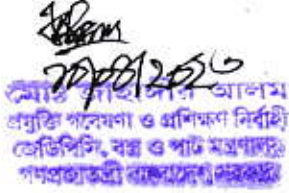 ২০/০৪/২০২৩
মোঃ জাহাঙ্গীর আলম
প্রযুক্তি গবেষণা ও প্রশিক্ষণ নির্বাহী
জেডিপিসি, বস্ত্র ও পাট মন্ত্রণালয়
গণপ্রজাতন্ত্রী বাংলাদেশ সরকার